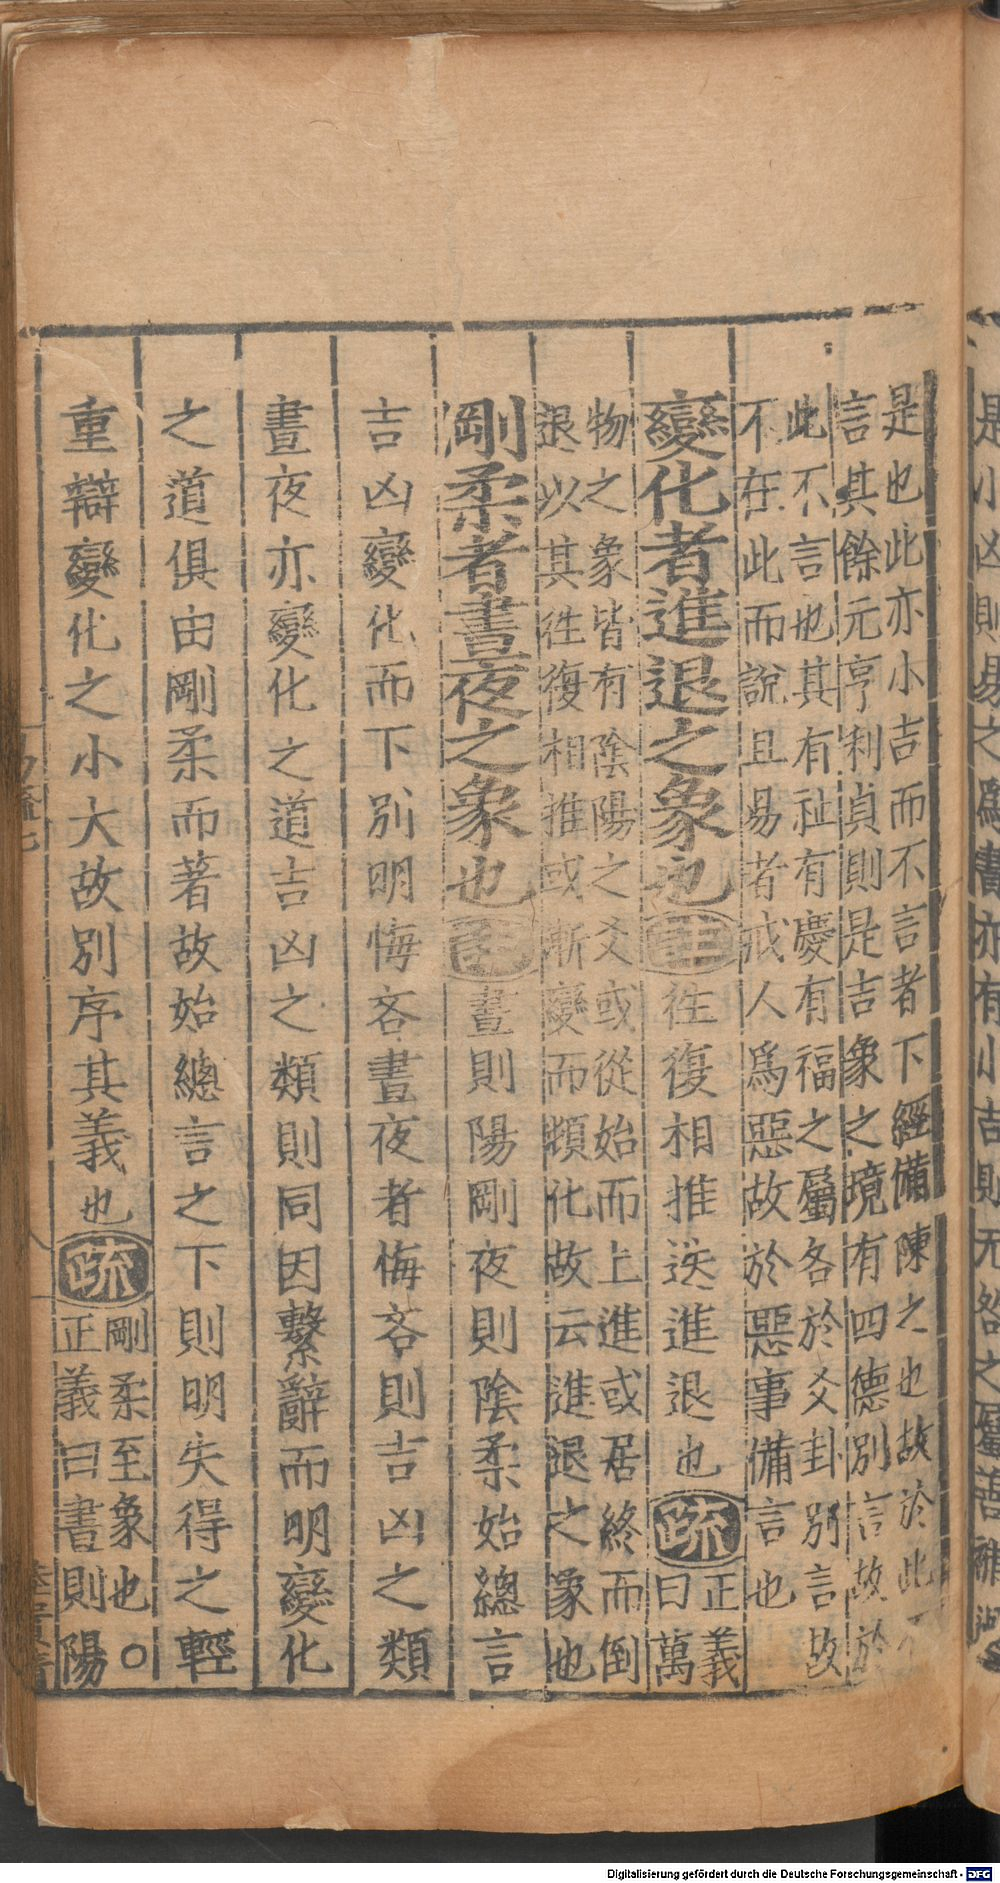 是也此亦小吉而不言者下經備陳之也故於此不
言其餘元亨利貞則是吉象之境有四德別言故於
此不言也其有祉有慶有福之屬各於爻卦別言故
不在此而說且易者戒人爲惡故於惡事備言也
變化者進退之象也註往復相推迭進退也疏正義
曰萬
物之象皆有陰陽之爻或從始而上進或居終而倒
退以其往復相推或漸變而頓化故云進退之象也
剛柔者晝夜之象也註晝則陽剛夜則陰柔始總言
吉凶變化而下別明悔吝晝夜者悔吝則吉凶之類
晝夜亦變化之道吉凶之類則同因繫辭而明變化
之道俱由剛柔而著故始總言之下則明失得之輕
重辯變化之小大故別序其義也疏剛柔至象也○
正義曰晝則陽
是小凶則易之爲書亦有小吉則无咎之屬善補過
Digitalisierung gefördert durch die Deutsche Forschungsgemeinschaft - DFG